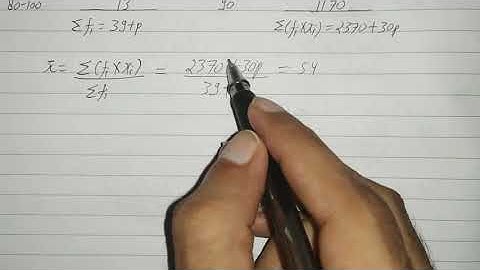 80-100 13 90 1170
Σfi = 39+p Σ(fi×xi) = 2370+30p
x̄ = Σ(fi×xi) / Σfi = 2370+30p / 39 = 54